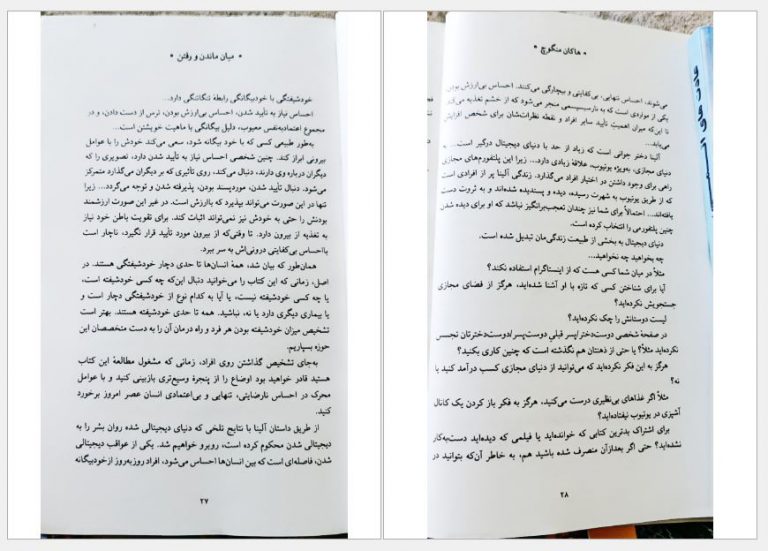 * میان ماندن و رفتن *
خودشیفتگی با خودبیگانگی رابطهٔ تنگاتنگی دارد...
احساس نیاز به تأیید شدن، احساس بی‌ارزش بودن، ترس از دست دادن، و در
مجموع اعتمادبه‌نفس معیوب، دلیل بیگانگی با ماهیت خویشتن است...
به‌طور طبیعی کسی که با خود بیگانه شود، سعی می‌کند خودش را با عوامل
بیرونی ابراز کند. چنین شخصی احساس نیاز به تأیید شدن دارد، تصویری را که
دیگران درباره وی دارند، دنبال می‌کند، روی تأثیری که بر دیگران می‌گذارد متمرکز
می‌شود. دنبال تأیید شدن، موردپسند بودن، پذیرفته شدن و توجه می‌گردد... زیرا
تنها در این صورت می‌تواند بپذیرد که باارزش است. در غیر این صورت ارزشمند
بودنش را حتی به خودش نیز نمی‌تواند اثبات کند. برای تقویت باطن خود نیاز
به تغذیه از بیرون دارد. تا وقتی‌که از بیرون مورد تأیید قرار نگیرد، ناچار است
بااحساس بی‌کفایتی درونی‌اش به سر ببرد.
همان‌طور که بیان شد، همهٔ انسان‌ها تا حدی دچار خودشیفتگی هستند. در
اصل، زمانی که این کتاب را می‌خوانید دنبال این‌که چه کسی خودشیفته است،
یا چه کسی خودشیفته نیست، یا آیا به کدام نوع از خودشیفتگی دچار است و
یا بیماری دیگری دارد یا نه، نباشید. همه تا حدی خودشیفته هستند. بهتر است
تشخیص میزان خودشیفته بودن هر فرد و راه درمان آن را به دست متخصصان این
حوزه بسپاریم.
به‌جای تشخیص گذاشتن روی افراد، زمانی که مشغول مطالعهٔ این کتاب
هستید قادر خواهید بود اوضاع را از پنجرهٔ وسیع‌تری بازبینی کنید و با عوامل
محرک در احساس نارضایتی، تنهایی و بی‌اعتمادی انسان عصر امروز برخورد
کنید.
از طریق داستان آلینا با نتایج تلخی که دنیای دیجیتالی شده روان بشر را به
دیجیتالی شدن محکوم کرده است، روبرو خواهیم شد. یکی از عواقب دیجیتالی
شدن، فاصله‌ای است که بین انسان‌ها احساس می‌شود، افراد روزبه‌روز ازخودبیگانه
۲۷
* هاکان منگوچ *
می‌شوند، احساس تنهایی، بی‌کفایتی و بیچارگی می‌کنند. احساس بی‌ارزش بودن
یکی از مواردی است که به نارسیسیسمی منجر می‌شود که از خشم تغذیه می‌کند
تا این‌که میزان اهمیت تأیید سایر افراد و نقطه نظرات‌شان برای شخص افزایش
می‌یابد...
آلینا دختر جوانی است که زیاد از حد با دنیای دیجیتال درگیر است... به
دنیای مجازی، به‌ویژه یوتیوب، علاقهٔ زیادی دارد... زیرا این پلتفورم‌های مجازی
راهی برای وجود داشتن در اختیار افراد می‌گذارد. زندگی آلینا پر از افرادی است
که از طریق یوتیوب به شهرت رسیده، دیده و پسندیده شده‌اند و به ثروت دست
یافته‌اند... احتمالاً برای شما نیز چندان تعجب‌برانگیز نباشد که او برای دیده شدن
چنین پلتفورمی را انتخاب کرده است.
دنیای دیجیتال به بخشی از طبیعت زندگی‌مان تبدیل شده است.
چه بخواهید چه نخواهید...
مثلاً در میان شما کسی هست که از اینستاگرام استفاده نکند؟
آیا برای شناختن کسی که تازه با او آشنا شده‌اید، هرگز از فضای مجازی
جستجویش نکرده‌اید؟
لیست دوستانش را چک نکرده‌اید؟
در صفحهٔ شخصی دوست‌دختر/پسر قبلی دوست‌پسر/دوست‌دخترتان تجسس
نکرده‌اید مثلاً؟ یا حتی از ذهنتان هم نگذشته است که چنین کاری بکنید؟
هرگز به این فکر نکرده‌اید که می‌توانید از دنیای مجازی کسب درآمد کنید یا
نه؟
مثلاً اگر غذاهای بی‌نظیری درست می‌کنید، هرگز به فکر باز کردن یک کانال
آشپزی در یوتیوب نیفتاده‌اید؟
برای اشتراک بدترین کتابی که خوانده‌اید یا فیلمی که دیده‌اید دست‌به‌کار
نشده‌اید؟ حتی اگر بعدازآن منصرف شده باشید هم، به خاطر آن‌که بتوانید در
۲۸